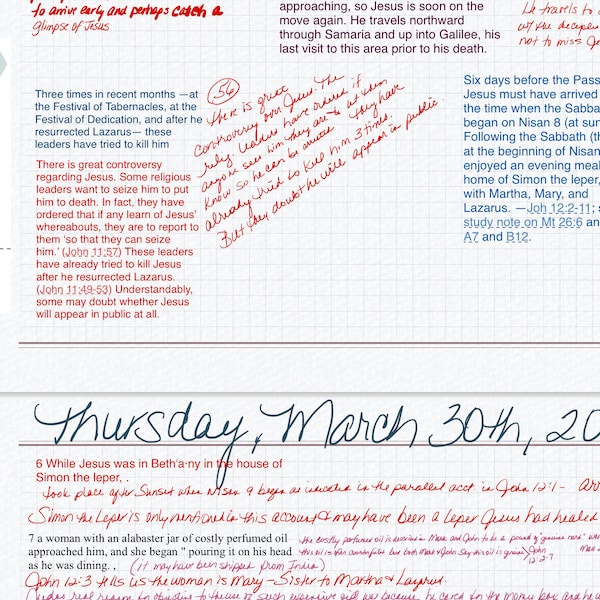 to arrive early and perhaps catch a
glimpse of Jesus
approaching, so Jesus is soon on the
move again. He travels northward
through Samaria and up into Galilee, his
last visit to this area prior to his death.
He travels to
w/ the disciples
not to miss Je
Three times in recent months —at
the Festival of Tabernacles, at the
Festival of Dedication, and after he
resurrected Lazarus— these
leaders have tried to kill him
There is great controversy
regarding Jesus. Some religious
leaders want to seize him to put
him to death. In fact, they have
ordered that if any learn of Jesus'
whereabouts, they are to report to
them 'so that they can seize
him.' (John 11:57) These leaders
have already tried to kill Jesus
after he resurrected Lazarus.
(John 11:49-53) Understandably,
some may doubt whether Jesus
will appear in public at all.
56
There is great
controversy over Jesus. The
relig leaders have ordered if
anyone sees him they are to let them
know so he can be arrested. They have
already tried to kill him 3 times.
But they doubt he will appear in public
Six days before the Pass
Jesus must have arrived
the time when the Sabba
began on Nisan 8 (at sun
Following the Sabbath (th
at the beginning of Nisan
enjoyed an evening meal
home of Simon the leper,
with Martha, Mary, and
Lazarus. —Joh 12:2-11; s
study note on Mt 26:6 an
A7 and B12.
Thursday, March 30th, 20
6 While Jesus was in Beth'a·ny in the house of
Simon the leper, .
took place after Sunset when Nisan 9 began as indicated in the parallel acct in John 12:1- arr
Simon the Leper is only mentioned in this account & may have been a leper Jesus had healed
7 a woman with an alabaster jar of costly perfumed oil
approached him, and she began " pouring it on his head
as he was dining. . (it may have been shipped from India)
the costly perfumed oil is described in Mark and John to be a pound of "genuine nard"
this oil is than
but both Mark & John say this oil is genuine John
12:2-7
John 12:3 tells us the woman is Mary - Sister to Martha & Lazarus.
Judas real reason in objecting to the use of such expensive oil was because he cared for the money box and he